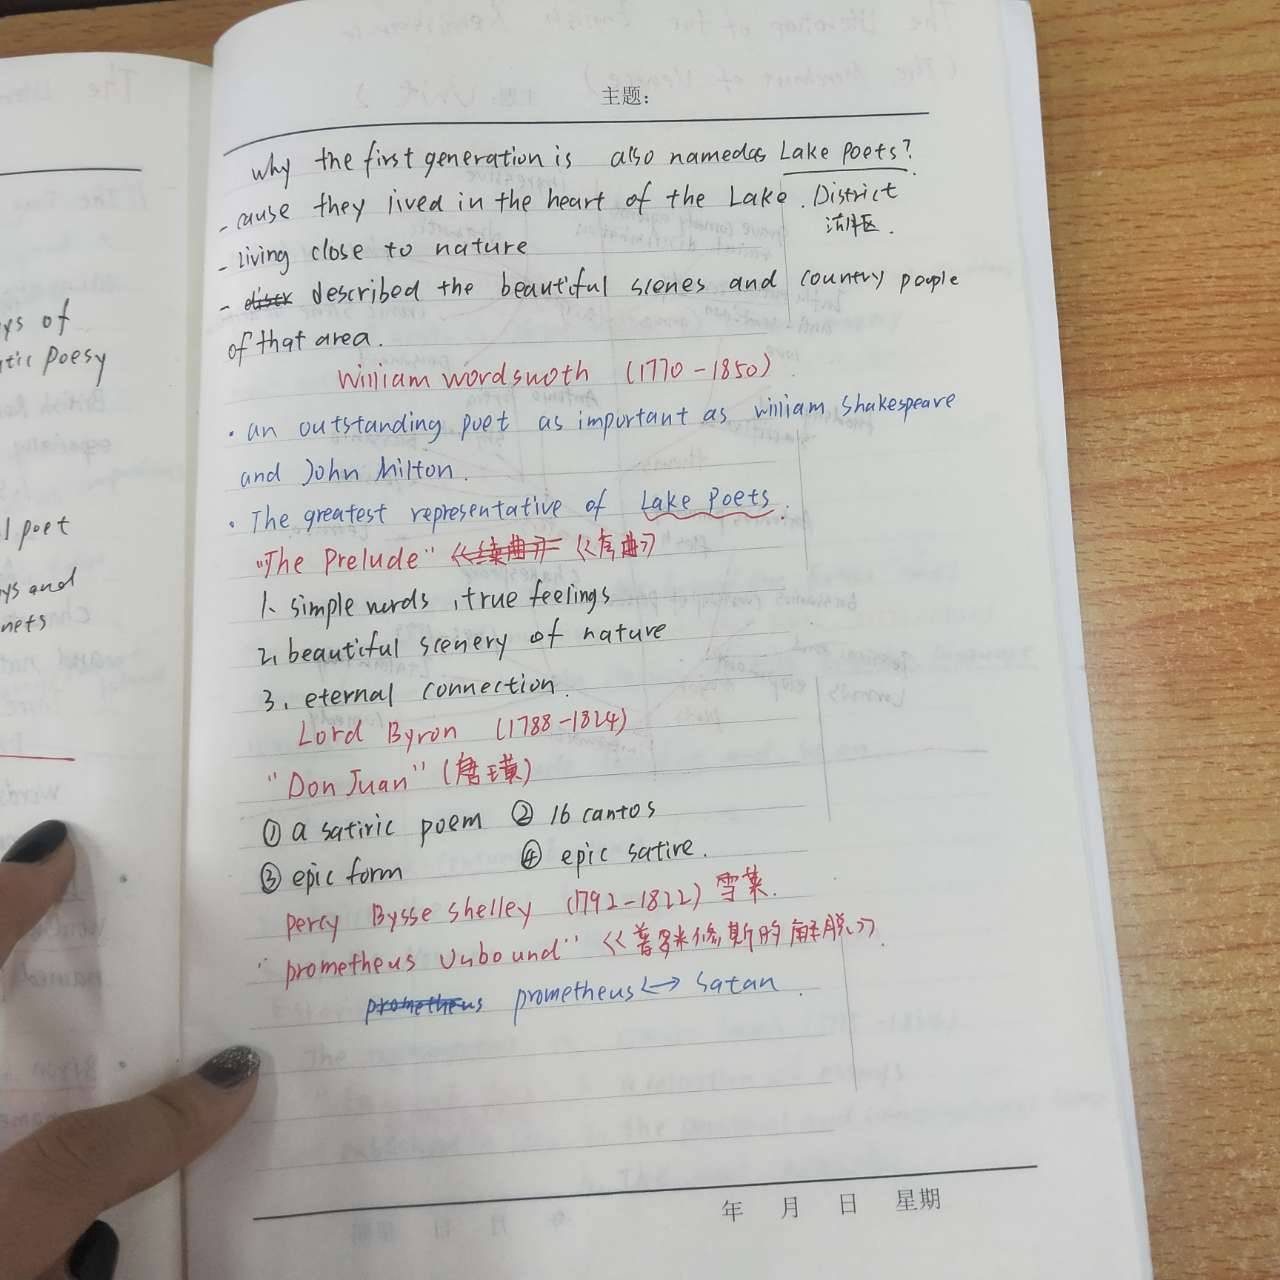 ys of
tic Poesy
l poet
ys and
nets
主题:
why the first generation is also named as Lake Poets?
- cause they lived in the heart of the Lake. District
湖区.
- living close to nature
- described the beautiful scenes and country people
of that area.
William wordswoth (1770-1850)
· an outstanding poet as important as william shakespeare
and John Milton.
· The greatest representative of Lake Poets.
"The Prelude" 《序曲》
1、simple words, true feelings
2, beautiful scenery of nature
3. eternal connection.
Lord Byron (1788-1824)
"Don Juan" (唐璜)
① a satiric poem ② 16 cantos
③ epic form ④ epic satire.
percy Bysse shelley (1792-1822) 雪莱.
"prometheus Unbound" 《普罗米修斯的解脱》.
prometheus prometheus <-> Satan.
年 月 日 星期